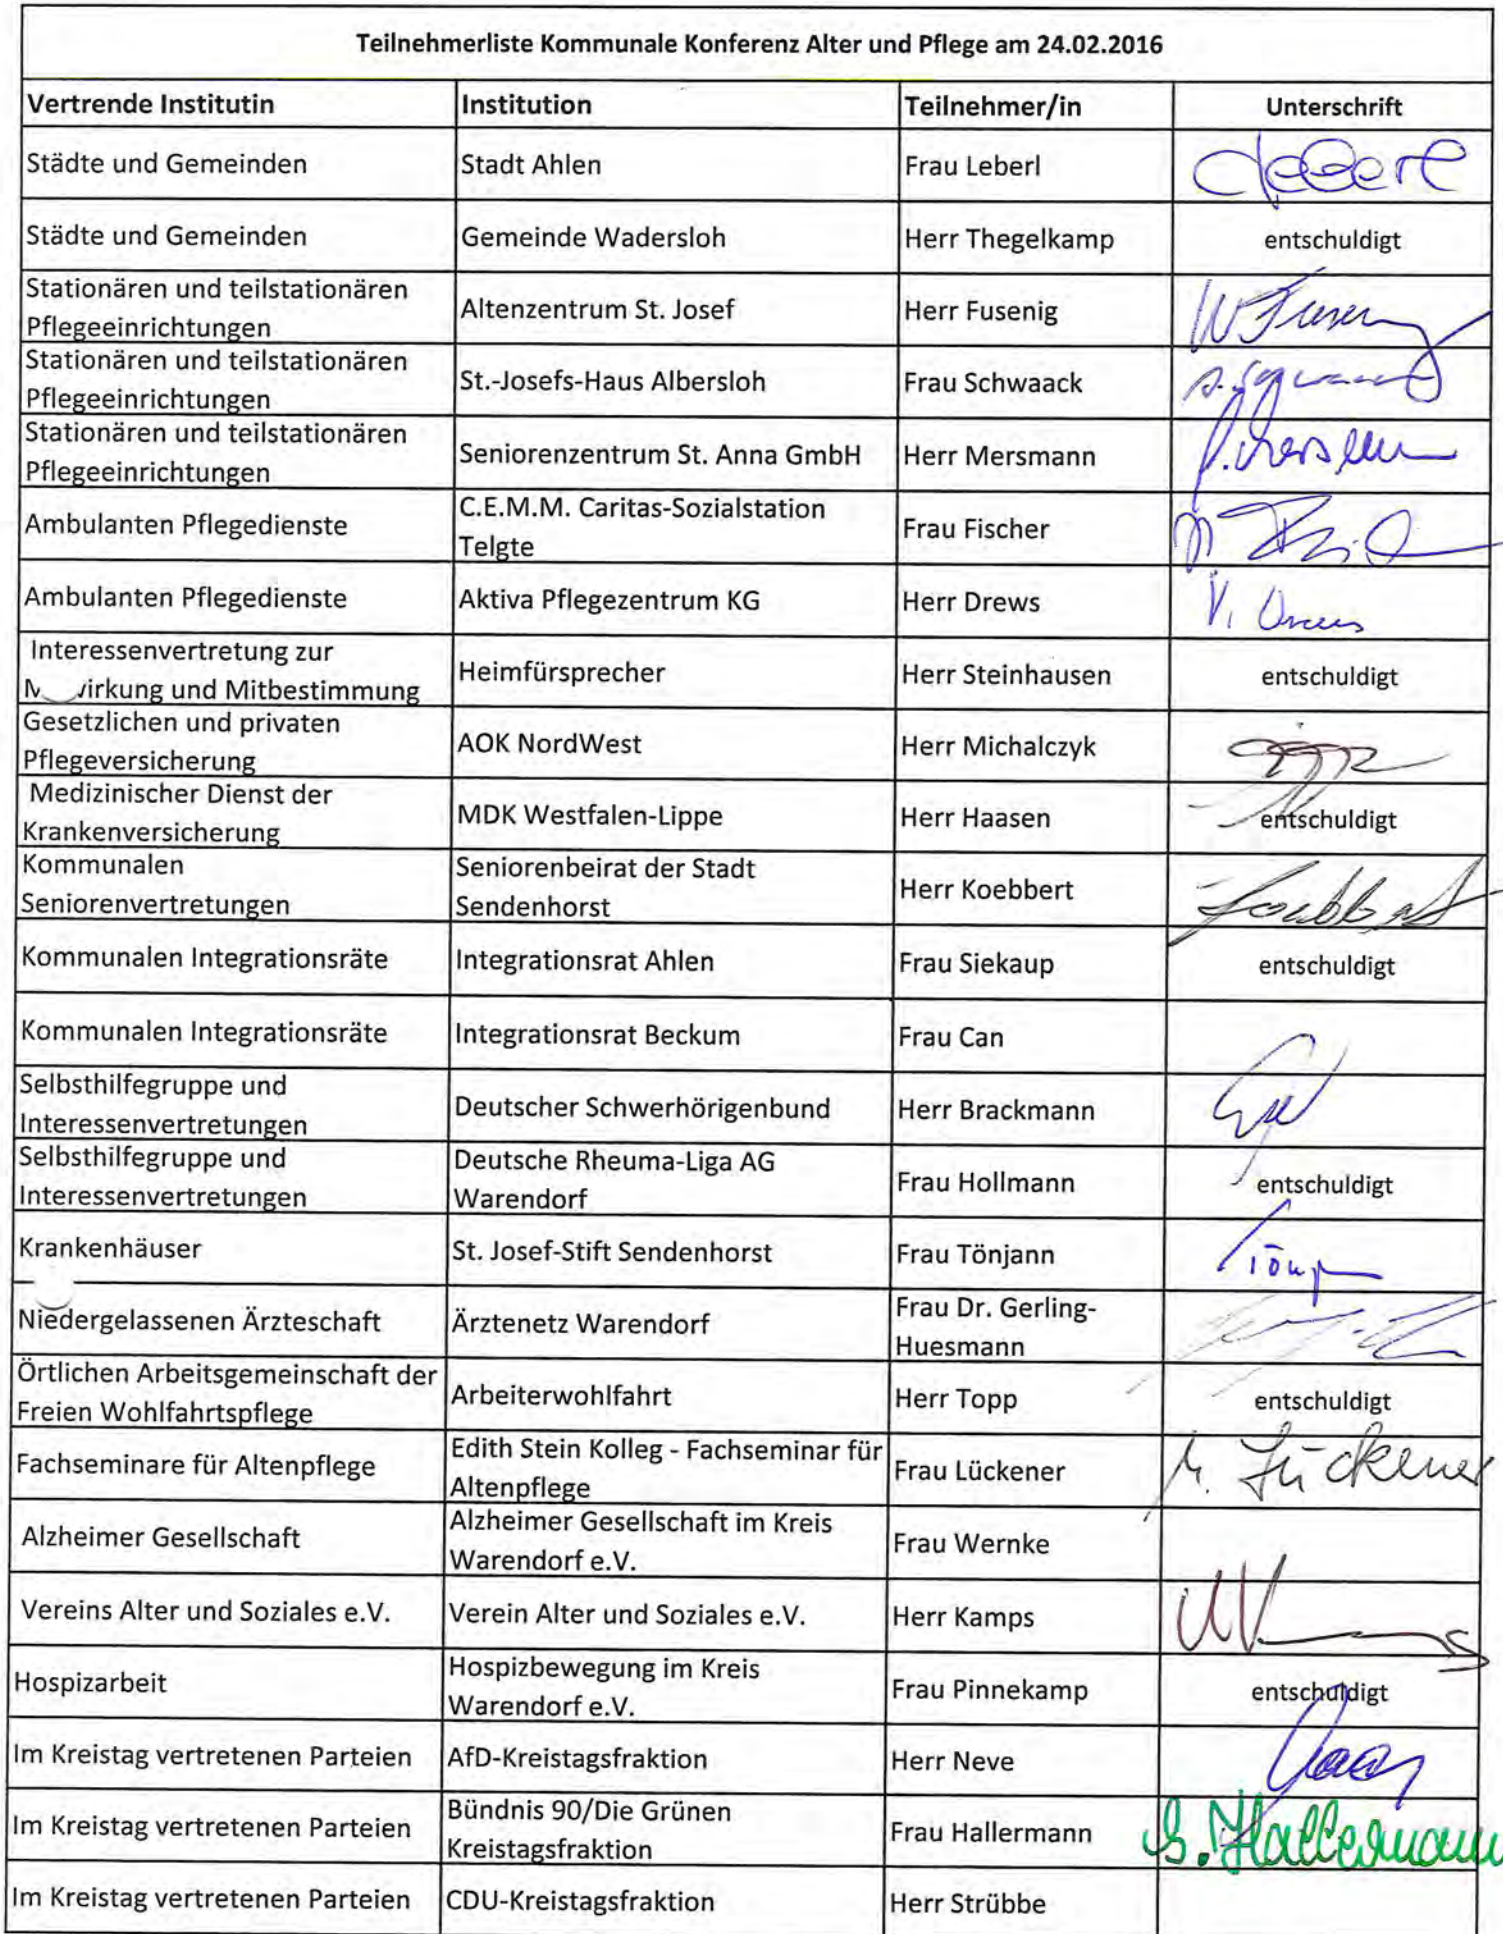 Teilnehmerliste Kommunale Konferenz Alter und Pflege am 24.02.2016
Vertrende Institutin Institution Teilnehmer/in Unterschrift
Städte und Gemeinden Stadt Ahlen Frau Leberl
Städte und Gemeinden Gemeinde Wadersloh Herr Thegelkamp entschuldigt
Stationären und teilstationären
Pflegeeinrichtungen Altenzentrum St. Josef Herr Fusenig
Stationären und teilstationären
Pflegeeinrichtungen St.-Josefs-Haus Albersloh Frau Schwaack
Stationären und teilstationären
Pflegeeinrichtungen Seniorenzentrum St. Anna GmbH Herr Mersmann
Ambulanten Pflegedienste C.E.M.M. Caritas-Sozialstation
Telgte Frau Fischer
Ambulanten Pflegedienste Aktiva Pflegezentrum KG Herr Drews
Interessenvertretung zur
und Mitbestimmung Heimfürsprecher Herr Steinhausen entschuldigt
Gesetzlichen und privaten
Pflegeversicherung AOK NordWest Herr Michalczyk
Medizinischer Dienst der
Krankenversicherung MDK Westfalen-Lippe Herr Haasen entschuldigt
Kommunalen
Seniorenvertretungen Seniorenbeirat der Stadt
Sendenhorst Herr Koebbert
Kommunalen Integrationsräte Integrationsrat Ahlen Frau Siekaup entschuldigt
Kommunalen Integrationsräte Integrationsrat Beckum Frau Can
Selbsthilfegruppe und
Interessenvertretungen Deutscher Schwerhörigenbund Herr Brackmann
Selbsthilfegruppe und
Interessenvertretungen Deutsche Rheuma-Liga AG
Warendorf Frau Hollmann entschuldigt
Krankenhäuser St. Josef-Stift Sendenhorst Frau Tönjann
Niedergelassenen Ärzteschaft Ärztenetz Warendorf Frau Dr. Gerling-
Huesmann
Örtlichen Arbeitsgemeinschaft der
Freien Wohlfahrtspflege Arbeiterwohlfahrt Herr Topp entschuldigt
Fachseminare für Altenpflege Edith Stein Kolleg - Fachseminar für
Altenpflege Frau Lückener Lückener
Alzheimer Gesellschaft Alzheimer Gesellschaft im Kreis
Warendorf e.V. Frau Wernke
Vereins Alter und Soziales e.V. Verein Alter und Soziales e.V. Herr Kamps
Hospizarbeit Hospizbewegung im Kreis
Warendorf e.V. Frau Pinnekamp entschuldigt
Im Kreistag vertretenen Parteien AfD-Kreistagsfraktion Herr Neve
Im Kreistag vertretenen Parteien Bündnis 90/Die Grünen
Kreistagsfraktion Frau Hallermann Hallermann
Im Kreistag vertretenen Parteien CDU-Kreistagsfraktion Herr Strübbe